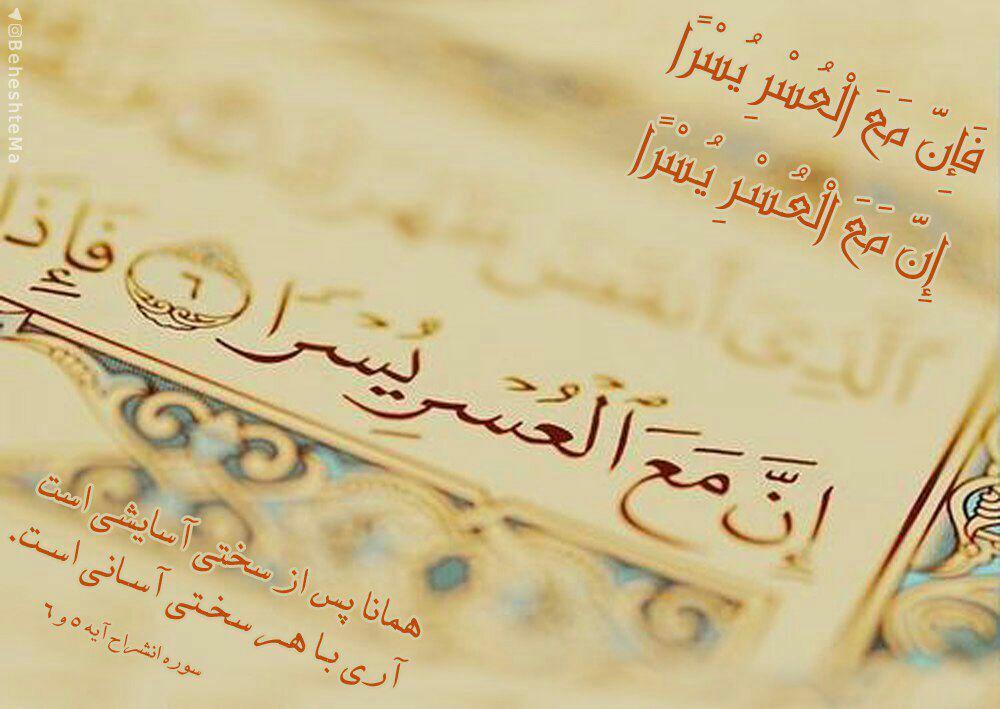 فَإِنَّ مَعَ الْعُسْرِ يُسْرًا
إِنَّ مَعَ الْعُسْرِ يُسْرًا
ٱلَّذِىٓ أَنقَضَ ظَهْرَكَ
إِنَّ مَعَ ٱلْعُسْرِ يُسْرًا ٦ فَإِذَا
همانا پس از سختی آسایشی است
آری با هر سختی آسانی است.
سوره انشراح آیه ۵ و ۶
@BeheshteMa